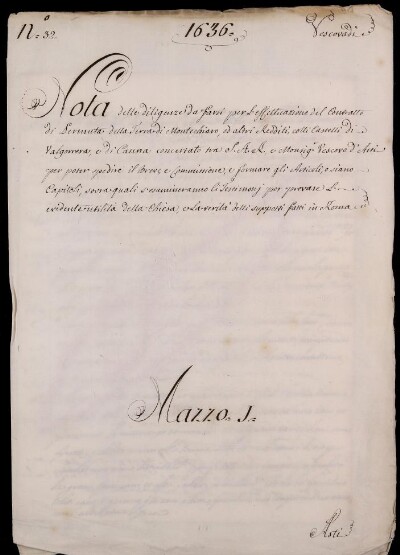 N.º 39.
1636.
Vescovadi
Nota delle diligenze da farsi per l'effettuazione del Contratto
di Permuta della Terra di Montechiaro, ed altri Redditi, colli Castelli di
Valgorrera, e di Canna concertato tra S. A. R. e Monsig.r Vescovo d'Asti
per poter spedire il Breve, e Commissione, e formare gli Articoli, e siano
Capitoli, sovra quali s'esamineranno li Testimonj per provare l'
evidente utilità della Chiesa, e la verità delli supposti fatti in Roma
Mazzo. 1.
Asti